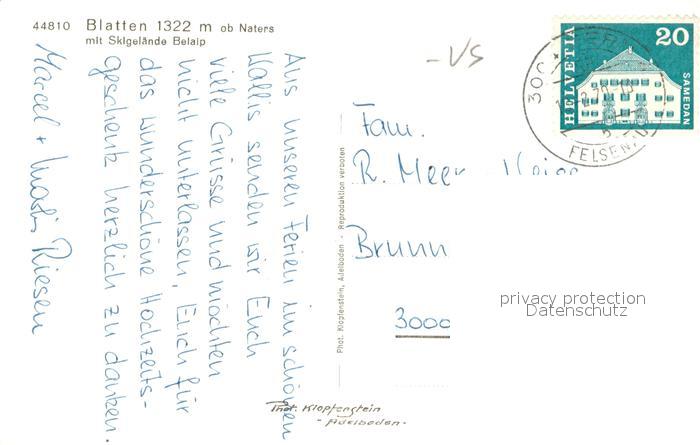 44810 Blatten 1322 m ob Naters
mit Skigelände Belalp
Aus unseren Ferien im schönen
Wallis senden wir Euch
viele Grüsse und möchten
nicht unterlassen, Euch für
das wunderschöne Hochzeits-
geschenk herzlich zu danken.
Marcel + Riesen
Phot. Klopfenstein, Adelboden - Reproduktion verboten
Phot. Klopfenstein
- Adelboden -
-VS
Fam.
R. Meer
Brunn
3000
HELVETIA
20
SAMEDAN
300
FELSENAU
privacy protection
Datenschutz